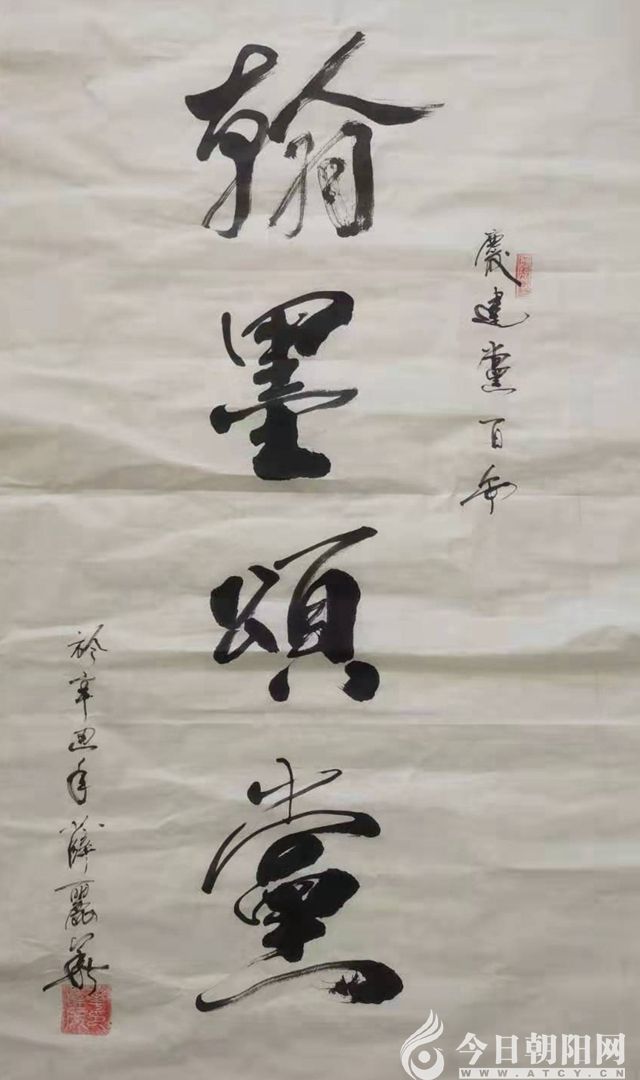 慶建黨百年
翰墨頌黨
於辛丑年薛麗華
今日朝阳网
WWW.ATCY.CN